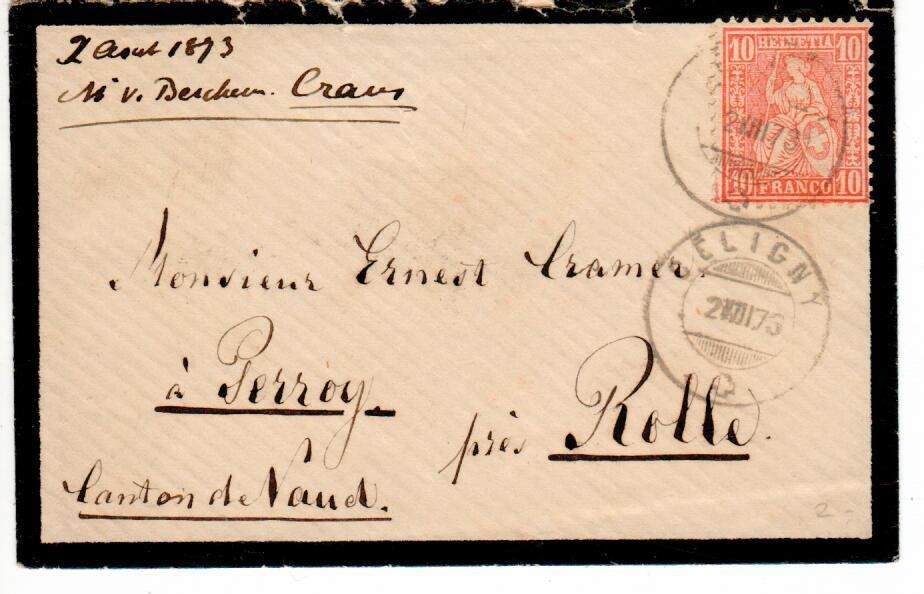 2 Aout 1873
M v. Berchem. Crans
10 HELVETIA 10
2 VIII 73
10 FRANCO 10
CÉLIGNY
2 VIII 73
Monsieur Ernest Cramer.
à Perroy.
près Rolle.
Canton de Vaud.
2-